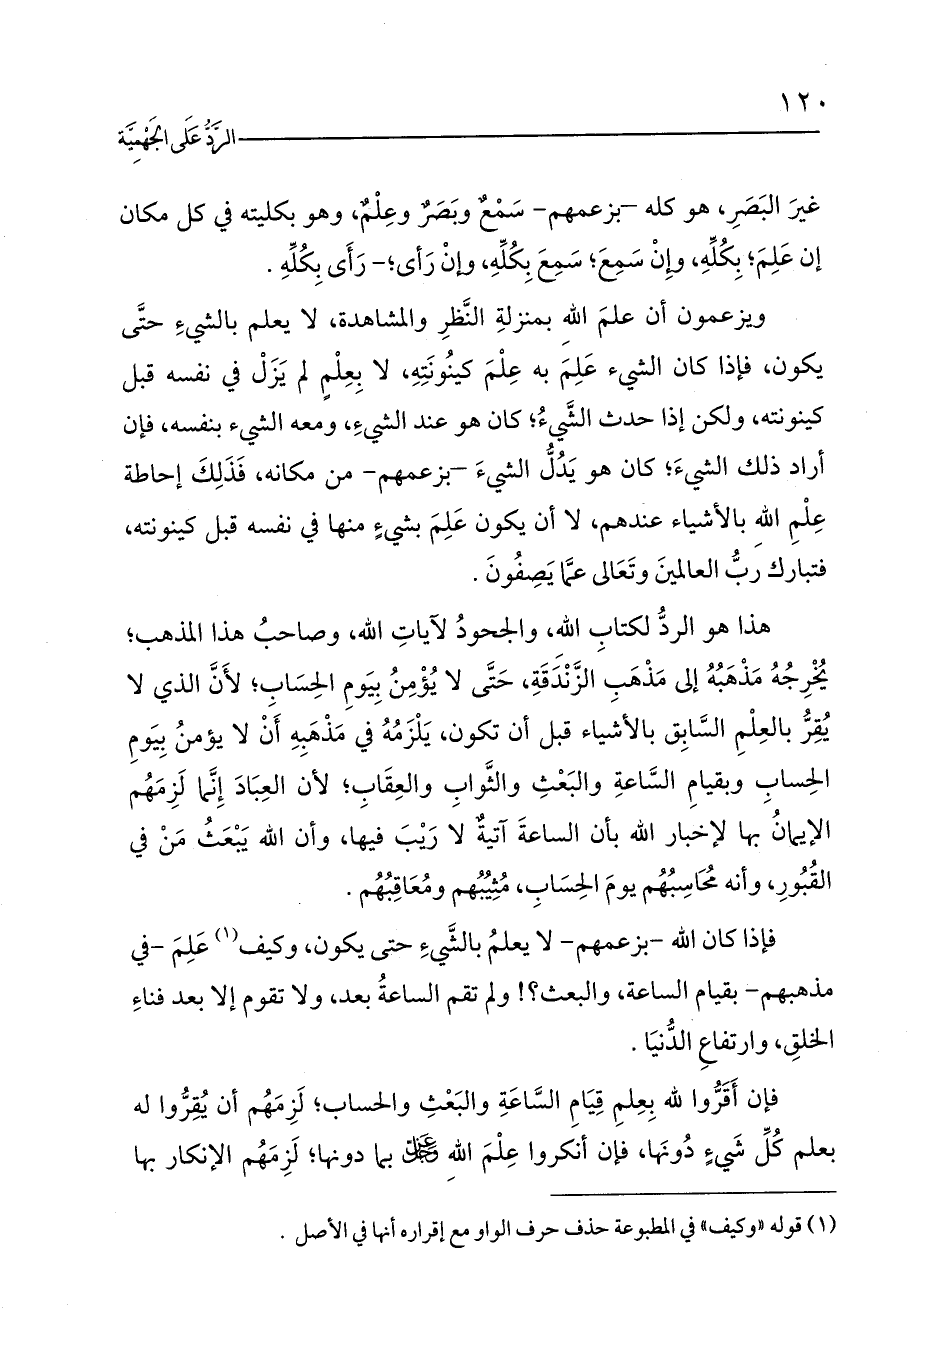 ١٢٠
الرَّدُّ عَلَى الجَهْمِيَّة
غيرَ البَصَرِ، هو كله -بزعمهم- سَمْعٌ وبَصَرٌ وعِلْمٌ، وهو بكليته في كل مكان
إن عَلِمَ؛ بِكُلِّهِ، وإِنْ سَمِعَ؛ سَمِعَ بِكُلِّهِ، وإنْ رَأى؛- رَأَى بِكُلِّهِ .
ويزعمون أن علمَ اللهِ بمنزلةِ النَّظرِ والمشاهدة، لا يعلم بالشيءِ حتَّى
يكون، فإذا كان الشيء عَلِمَ به عِلْمَ كينُونَتِهِ، لا بِعِلْمٍ لم يَزَلْ في نفسه قبل
كينونته، ولكن إذا حدث الشَّيءُ؛ كان هو عند الشيءِ، ومعه الشيء بنفسه، فإن
أراد ذلك الشيءَ؛ كان هو يَدُلُّ الشيءَ -بزعمهم- من مكانه، فَذَلِكَ إحاطة
عِلْمِ اللهِ بالأشياء عندهم، لا أن يكون عَلِمَ بشيءٍ منها في نفسه قبل كينونته،
فتبارك ربُّ العالمينَ وتَعَالى عمَّا يَصِفُونَ .
هذا هو الردُّ لكتابِ اللهِ، والجحودُ لآياتِ الله، وصاحبُ هذا المذهب؛
يُخْرِجُهُ مَذْهَبُهُ إلى مَذْهَبِ الزَّنْدَقَةِ، حَتَّى لا يُؤْمِنُ بِيَومِ الحِسَابِ؛ لأَنَّ الذي لا
يُقِرُّ بالعِلْمِ السَّابِق بالأشياء قبل أن تكون، يَلْزَمُهُ في مَذْهَبِهِ أَنْ لا يؤمنُ بِيَومِ
الحِسابِ وبقيامِ السَّاعةِ والبَعْثِ والثَّوابِ والعِقَابِ؛ لأن العِبَادَ إِنَّما لَزِمَهُم
الإيمانُ بها لإخبار الله بأن الساعةَ آتيةٌ لا رَيْبَ فيها، وأن الله يَبْعَثُ مَنْ في
القُبُورِ، وأنه مُحَاسِبُهُم يومَ الحِسَابِ، مُثِيْبُهُم ومُعَاقِبُهُم .
فإذا كان الله -بزعمهم- لا يعلمُ بالشَّيءِ حتى يكون، وكيف(١) عَلِمَ -في
مذهبهم- بقيام الساعة، والبعث؟! ولم تقم الساعةُ بعد، ولا تقوم إلا بعد فناءِ
الخلقِ، وارتفاعِ الدُّنيَا .
فإن أَقَرُّوا لله بِعِلمِ قِيَامِ السَّاعَةِ والبَعْثِ والحساب؛ لَزِمَهُم أن يُقِرُّوا له
بعلم كُلِّ شَيءٍ دُونَها، فإن أنكروا عِلْمَ اللهِ ﷻ بما دونها؛ لَزِمَهُم الإنكار بها
(١) قوله «وكيف» في المطبوعة حذف حرف الواو مع إقراره أنها في الأصل .